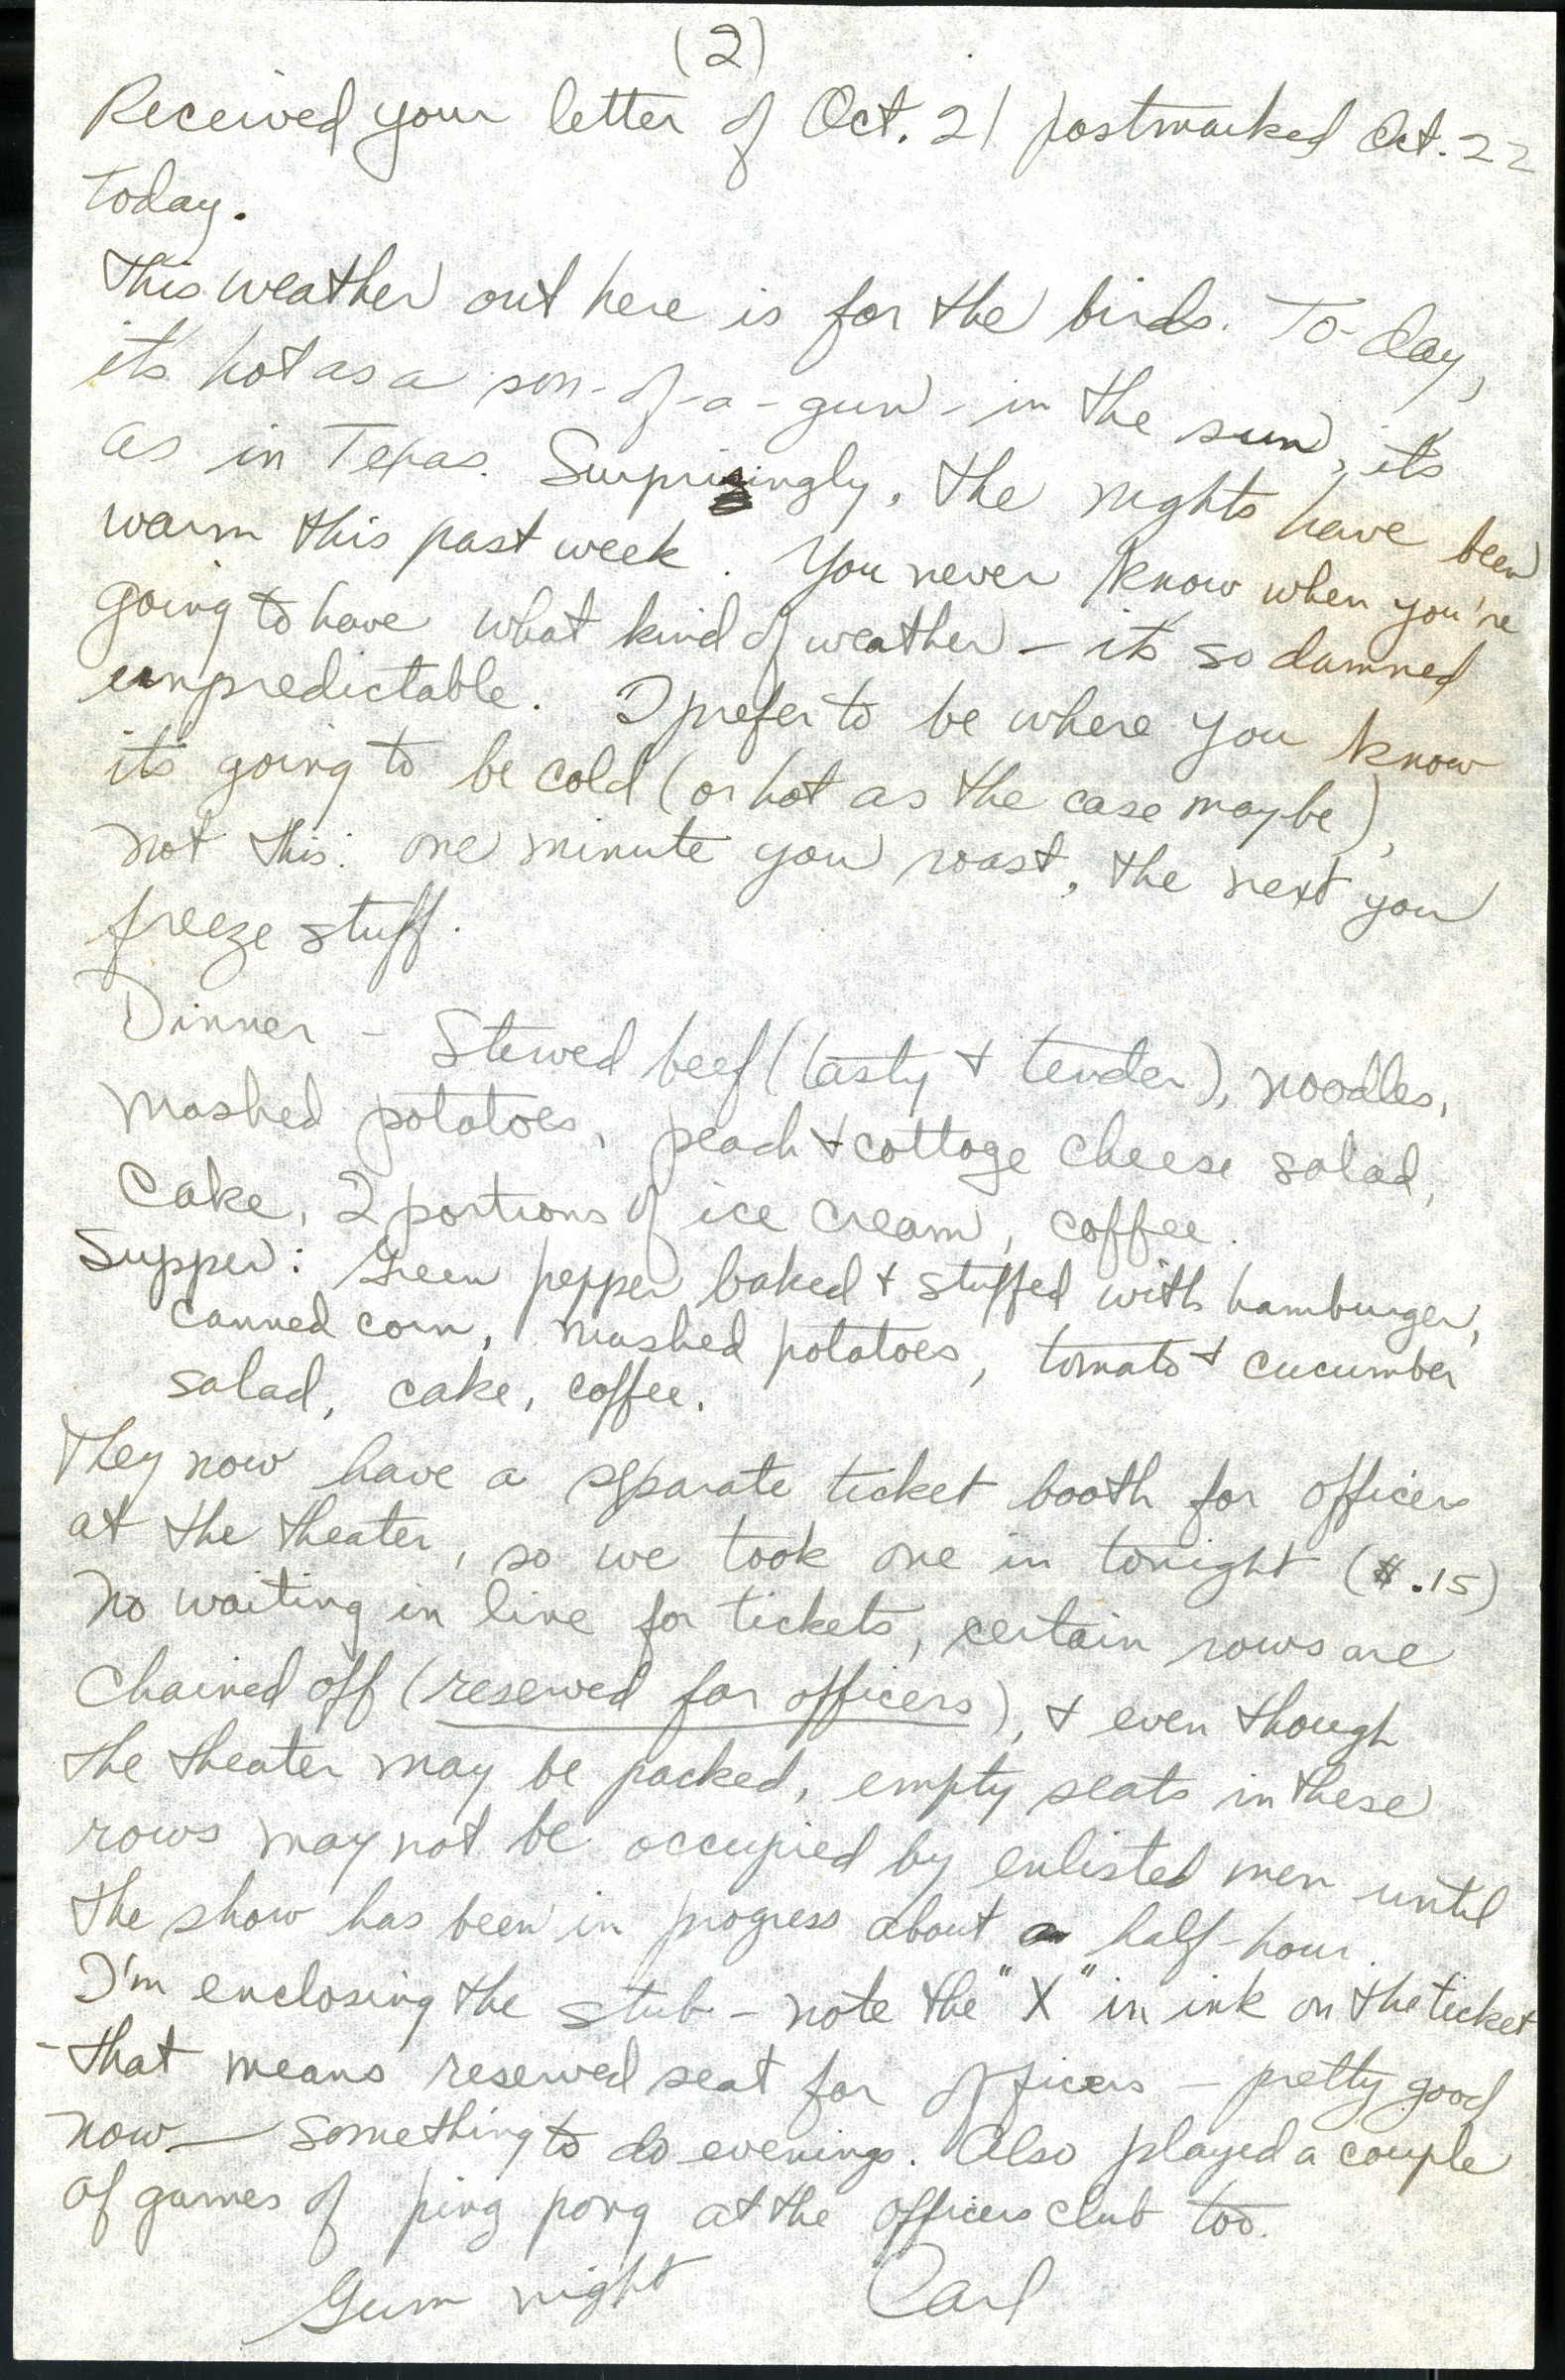 (2)
Received your letter of Oct. 21 postmarked Oct. 22
today.
This weather out here is for the birds. To-day,
it's hot as a son-of-a-gun - in the sun, it's
as in Texas. Surprisingly, the nights have been
warm this past week. You never know when you're
going to have what kind of weather - it's so damned
unpredictable. I prefer to be where you know
it's going to be cold (or hot as the case may be),
not this: one minute you roast, the next you
freeze stuff.
Dinner - Stewed beef (tasty & tender), noodles,
mashed potatoes, peach & cottage cheese salad,
Cake, 2 portions of ice cream, coffee.
Supper: Green pepper baked & stuffed with hamburger,
canned corn, mashed potatoes, tomato & cucumber
salad, cake, coffee.
They now have a separate ticket booth for officers
at the theater, so we took one in tonight ($.15)
No waiting in line for tickets, certain rows are
chained off (reserved for officers), & even though
the theater may be packed, empty seats in these
rows may not be occupied by enlisted men until
the show has been in progress about a half-hour.
I'm enclosing the stub - note the "X" in ink on the ticket
- that means reserved seat for officers - pretty good
now - something to do evenings. Also played a couple
of games of ping pong at the officers club too.
Gum night Carl